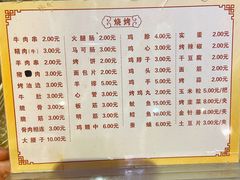 烧烤
牛肉串 2.00元
精肉(牛) 3.00元
羊肉串 3.00元
3.00元
烤油边 3.00元
牛肚 3.00元
烧骨 3.00元
脆骨 3.00元
骨肉相连 3.00元
太腰子 10.00元
火腿肠 2.00元
马可肠 3.00元
烤饼 2.00元
面包片 2.00元
面筋 2.00元
羊排 3.00元
心管 3.00元
板筋 3.00元
鸡脆中 3.00元
鸡脖 4.00元
鸡心 3.00元
鸡头 3.00元
鸡手 3.00元
鸡排 3.00元
烤鸡丸 2.00元
鱿鱼 5.00元
蚕蛹 5.00元
实蛋 2.00元
烤辣椒 2.00元
干豆腐 2.00元
面筋 2.00元
豆皮 2.00元
玉米粒 5.00元/盘
烤蒜 5.00元/盘
金针菇 5.00元/盘
土豆片 5.00元/盘